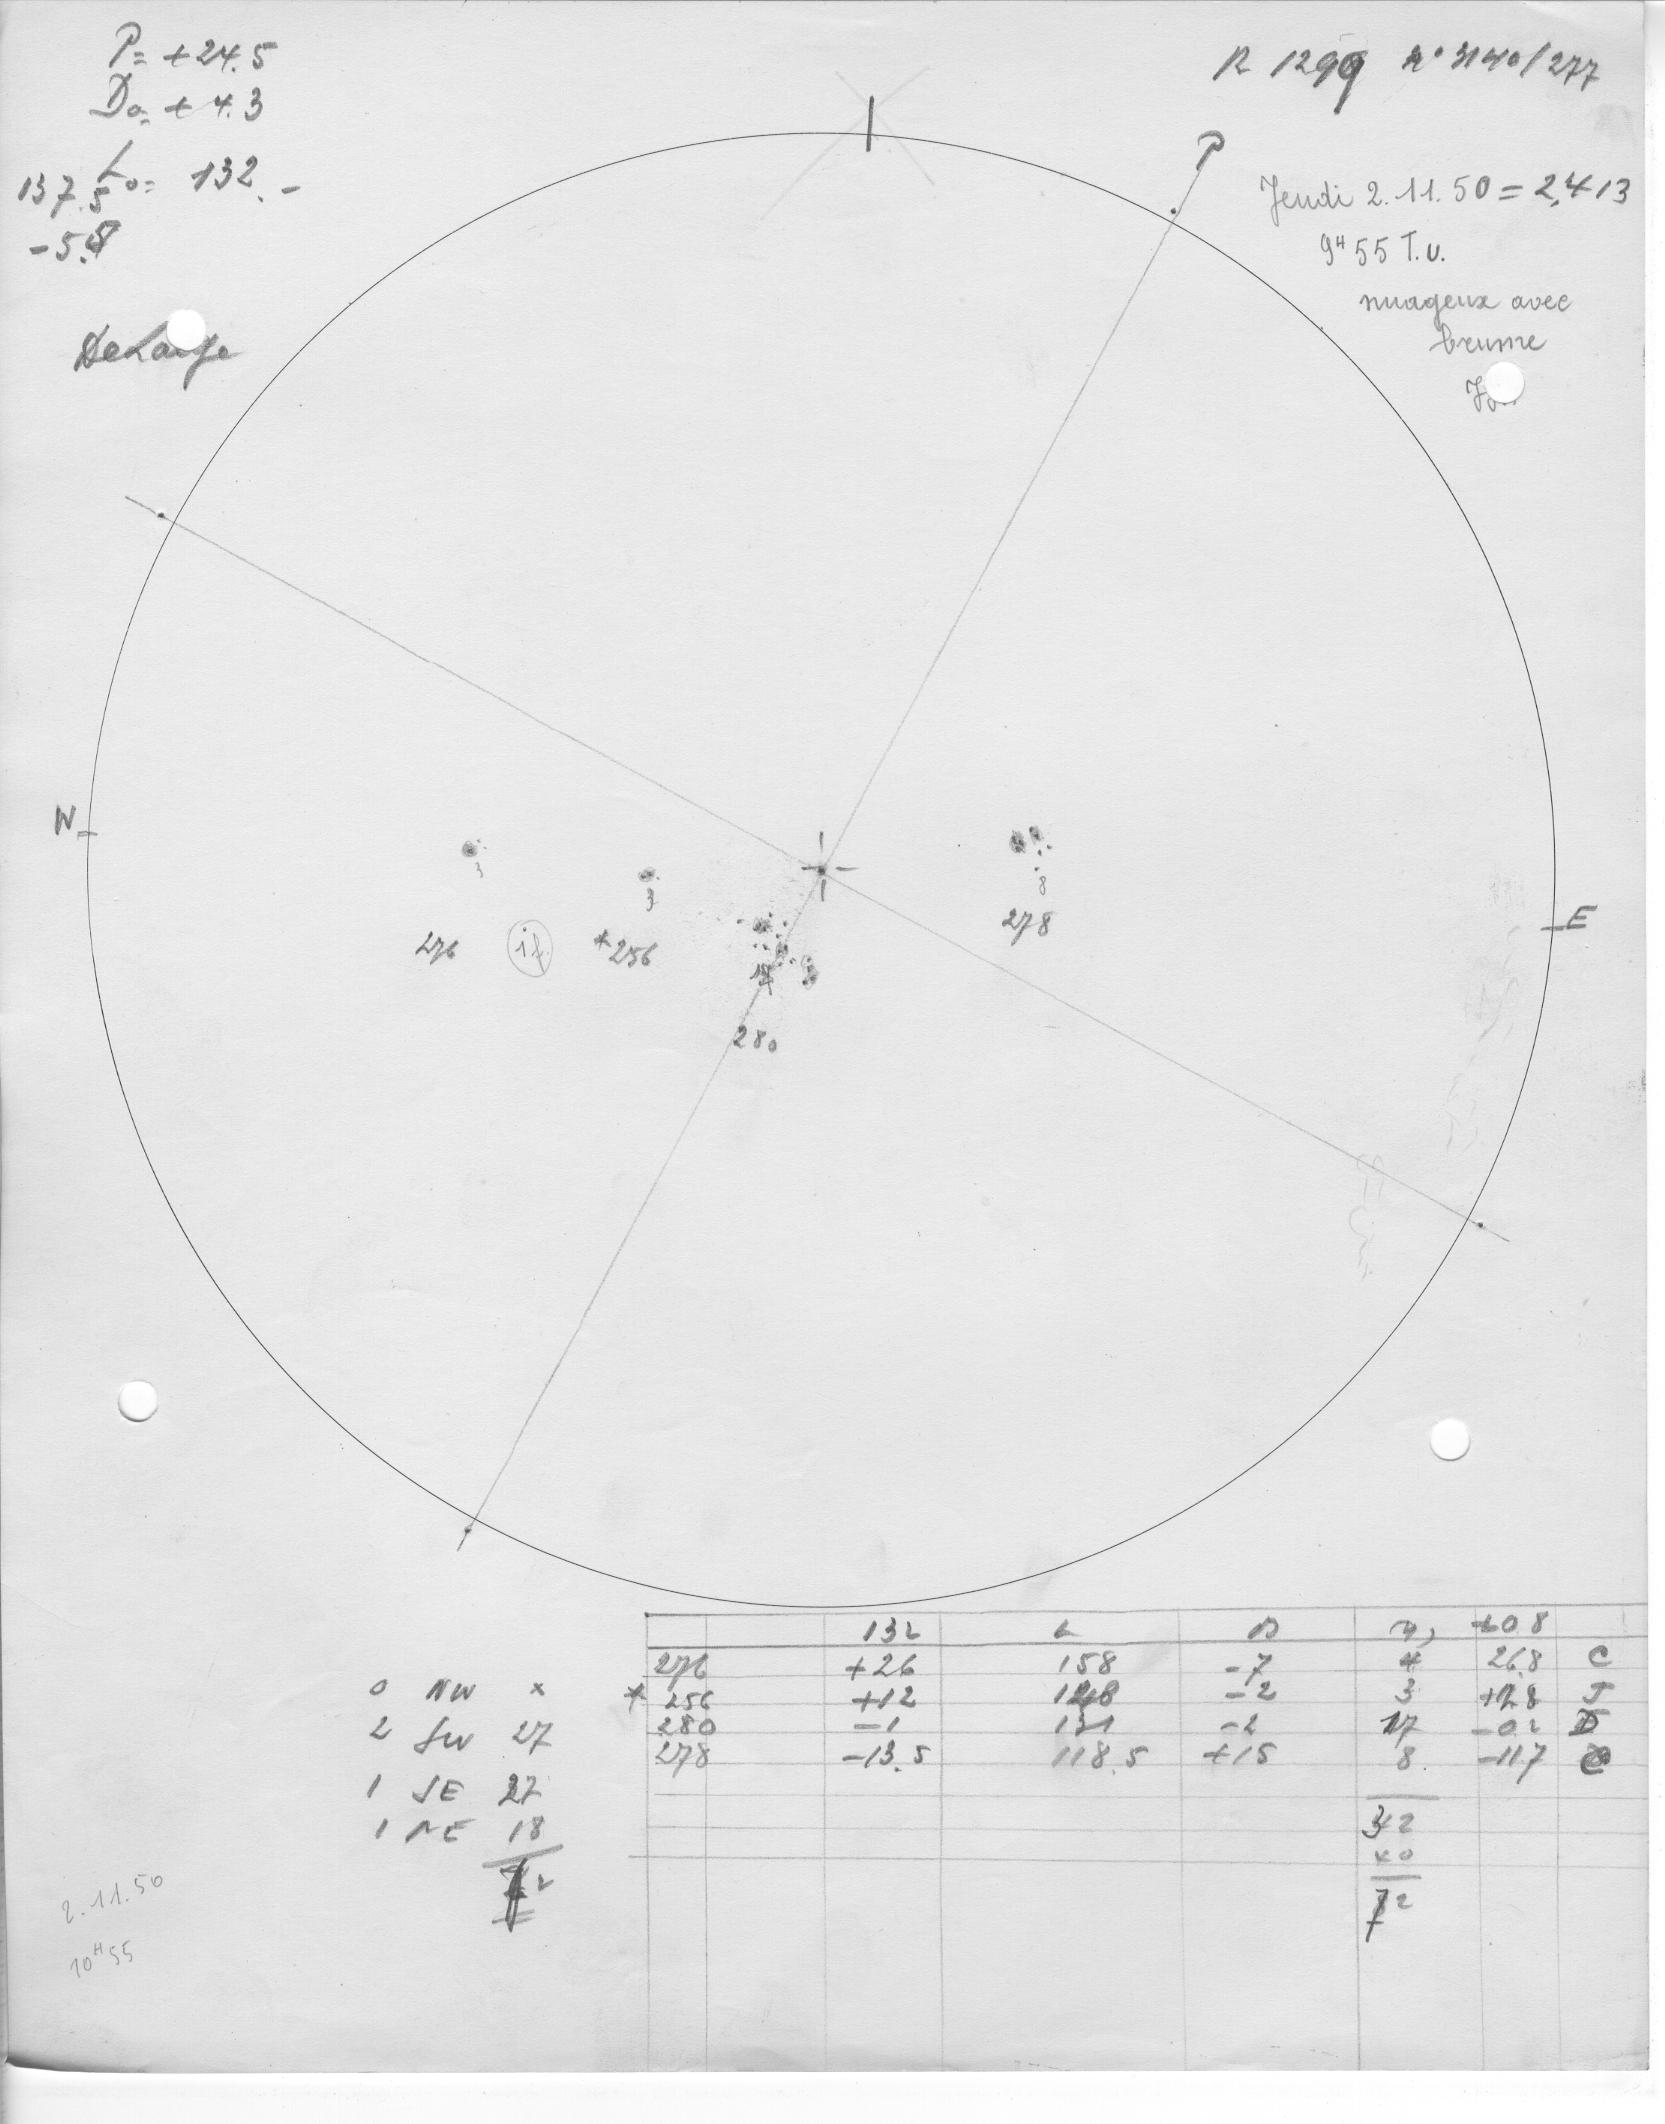 P = +24.5
D₀ = +4.3
L₀ = 132.-
137.5
-5.5
DeLarge
R 1299 N° 3140/277
P
Jeudi 2.11.50 = 2,413
9ᴴ55 T.U.
nuageux avec
brume
W
E
3
3
8
278
276
if
*256
17
280
132 L B +0.8
276 +26 158 -7 4 26.8 C
* 256 +12 -2 3 +12.8 J
280 -1 131 -2 17 -0.2 D
278 -13.5 118.5 +15 8 -11.7 C
32
40
72
0 NW x
2 SW 27
1 SE 27
1 NE 18
72
2.11.50
10ᴴ55